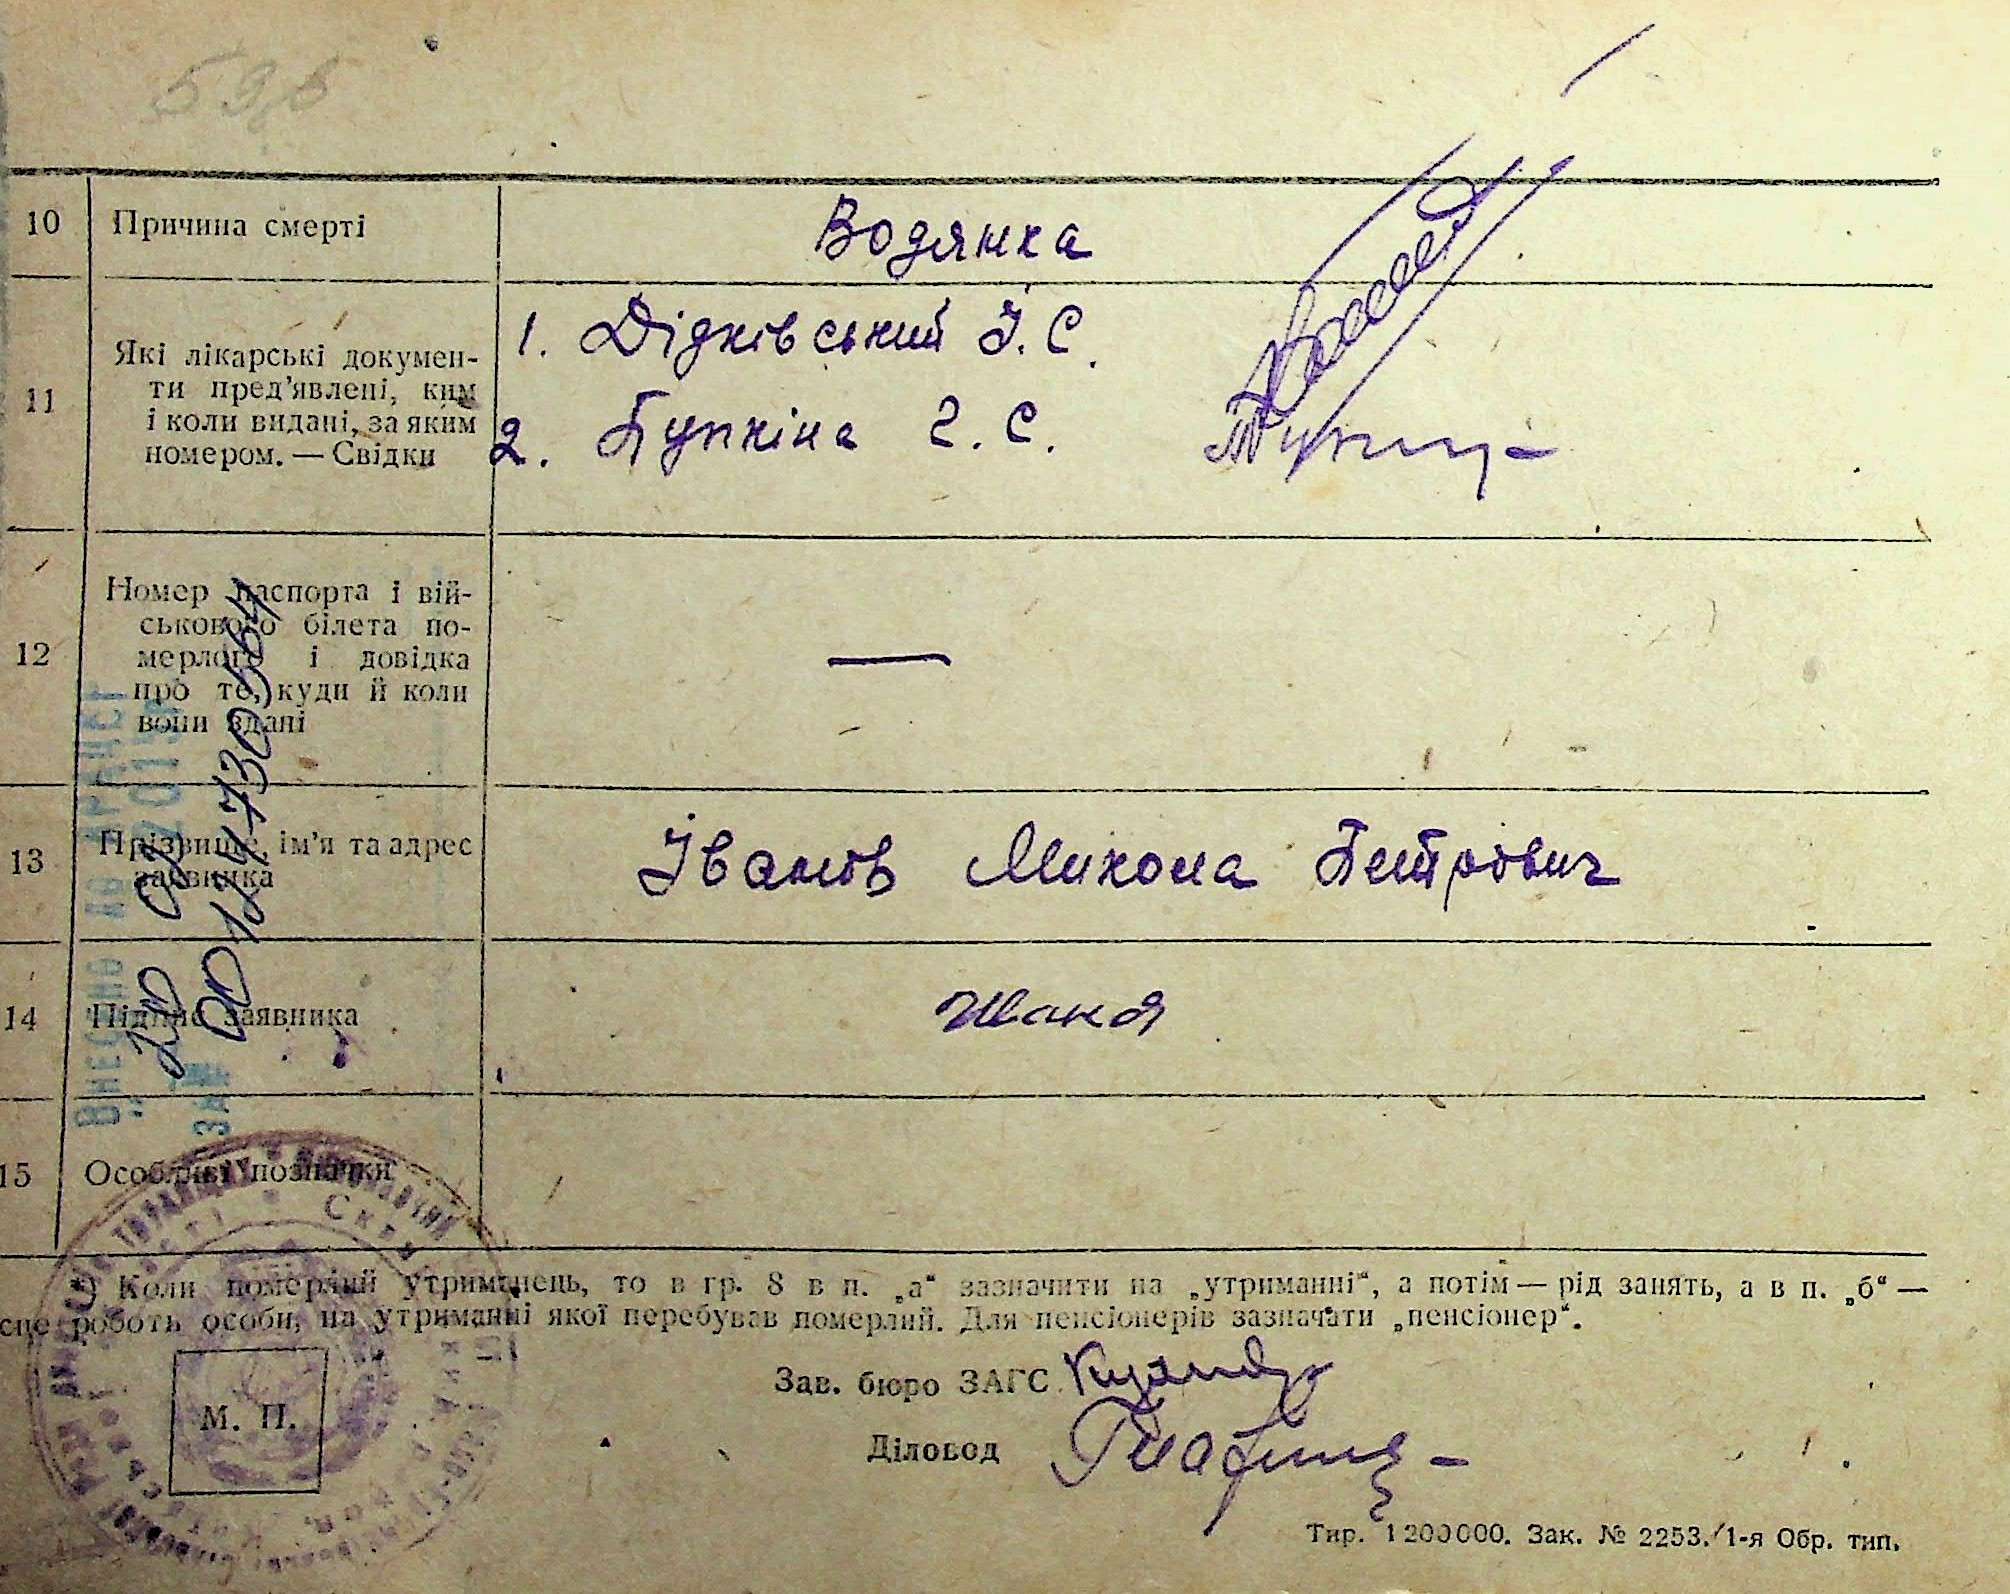 59,6
10 Причина смерті Водянка
11 Які лікарські докумен-
ти пред'явлені, ким
і коли видані, за яким
номером. — Свідки
1. Дідківський І. С.
2. Бупкіна Г. С.
12 Номер паспорта і вій-
ськового білета по-
мерлого і довідка
про те, куди й коли
вони здані
—
13 Прізвище, ім'я та адрес
заявника
Іванов Микола Петрович
14 Підпис заявника
15 Особливі позначки
Внесно до
20 02 201
за № 0012473055
*) Коли померлий утриманець, то в гр. 8 в п. „а“ зазначити на „утриманні“, а потім — рід занять, а в п. „б“ —
сце роботь особи, на утриманні якої перебував померлий. Для пенсіонерів зазначати „пенсіонер“.
Зав. бюро ЗАГС
М. П.
Діловод
Тир. 1200000. Зак. № 2253. 1-я Обр. тип.